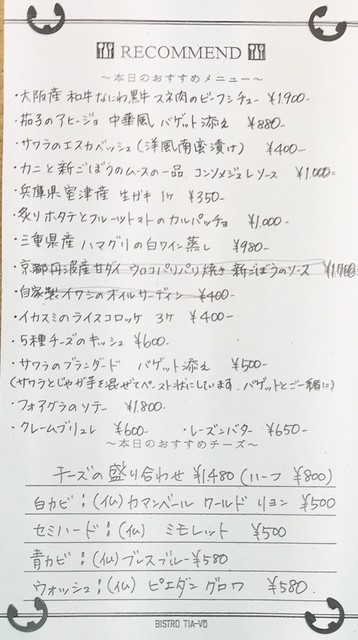 RECOMMEND
～本日のおすすめメニュー～
・大阪産 和牛なにわ黒牛 スネ肉のビーフシチュー ¥1,900-
・茄子のアヒージョ 中華風 バゲット添え ¥880-
・サワラのエスカベッシュ (洋風南蛮漬け) ¥400-
・カニと新ごぼうのムースの一品 コンソメジュレソース ¥1,000-
・兵庫県室津産 生ガキ 1ヶ ¥350-
・炙りホタテとフルーツトマトのカルパッチョ ¥1,000-
・三重県産 ハマグリの白ワイン蒸し ¥980-
・京都丹波産甘ダイ ウロコパリパリ焼き 新ごぼうのソース
・自家製イワシのオイルサーディン ¥400-
・イカスミのライスコロッケ 3ヶ ¥400-
・5種チーズのキッシュ ¥600-
・サワラのブランダード バゲット添え ¥500-
(サワラとじゃが芋を混ぜてペースト状にしています。バゲットとご一緒に)
・フォアグラのソテー ¥1,800-
・クレームブリュレ ¥600- ・レーズンバター ¥650-
～本日のおすすめチーズ～
チーズの盛り合わせ ¥1480 (ハーフ ¥800)
白カビ：(仏) カマンベール ワールド リヨン ¥500
セミハード：(仏) ミモレット ¥500
青カビ：(仏) ブレスブルー ¥580
ウォッシュ：(仏) ピエダングロワ ¥580
BISTRO TIA-VO